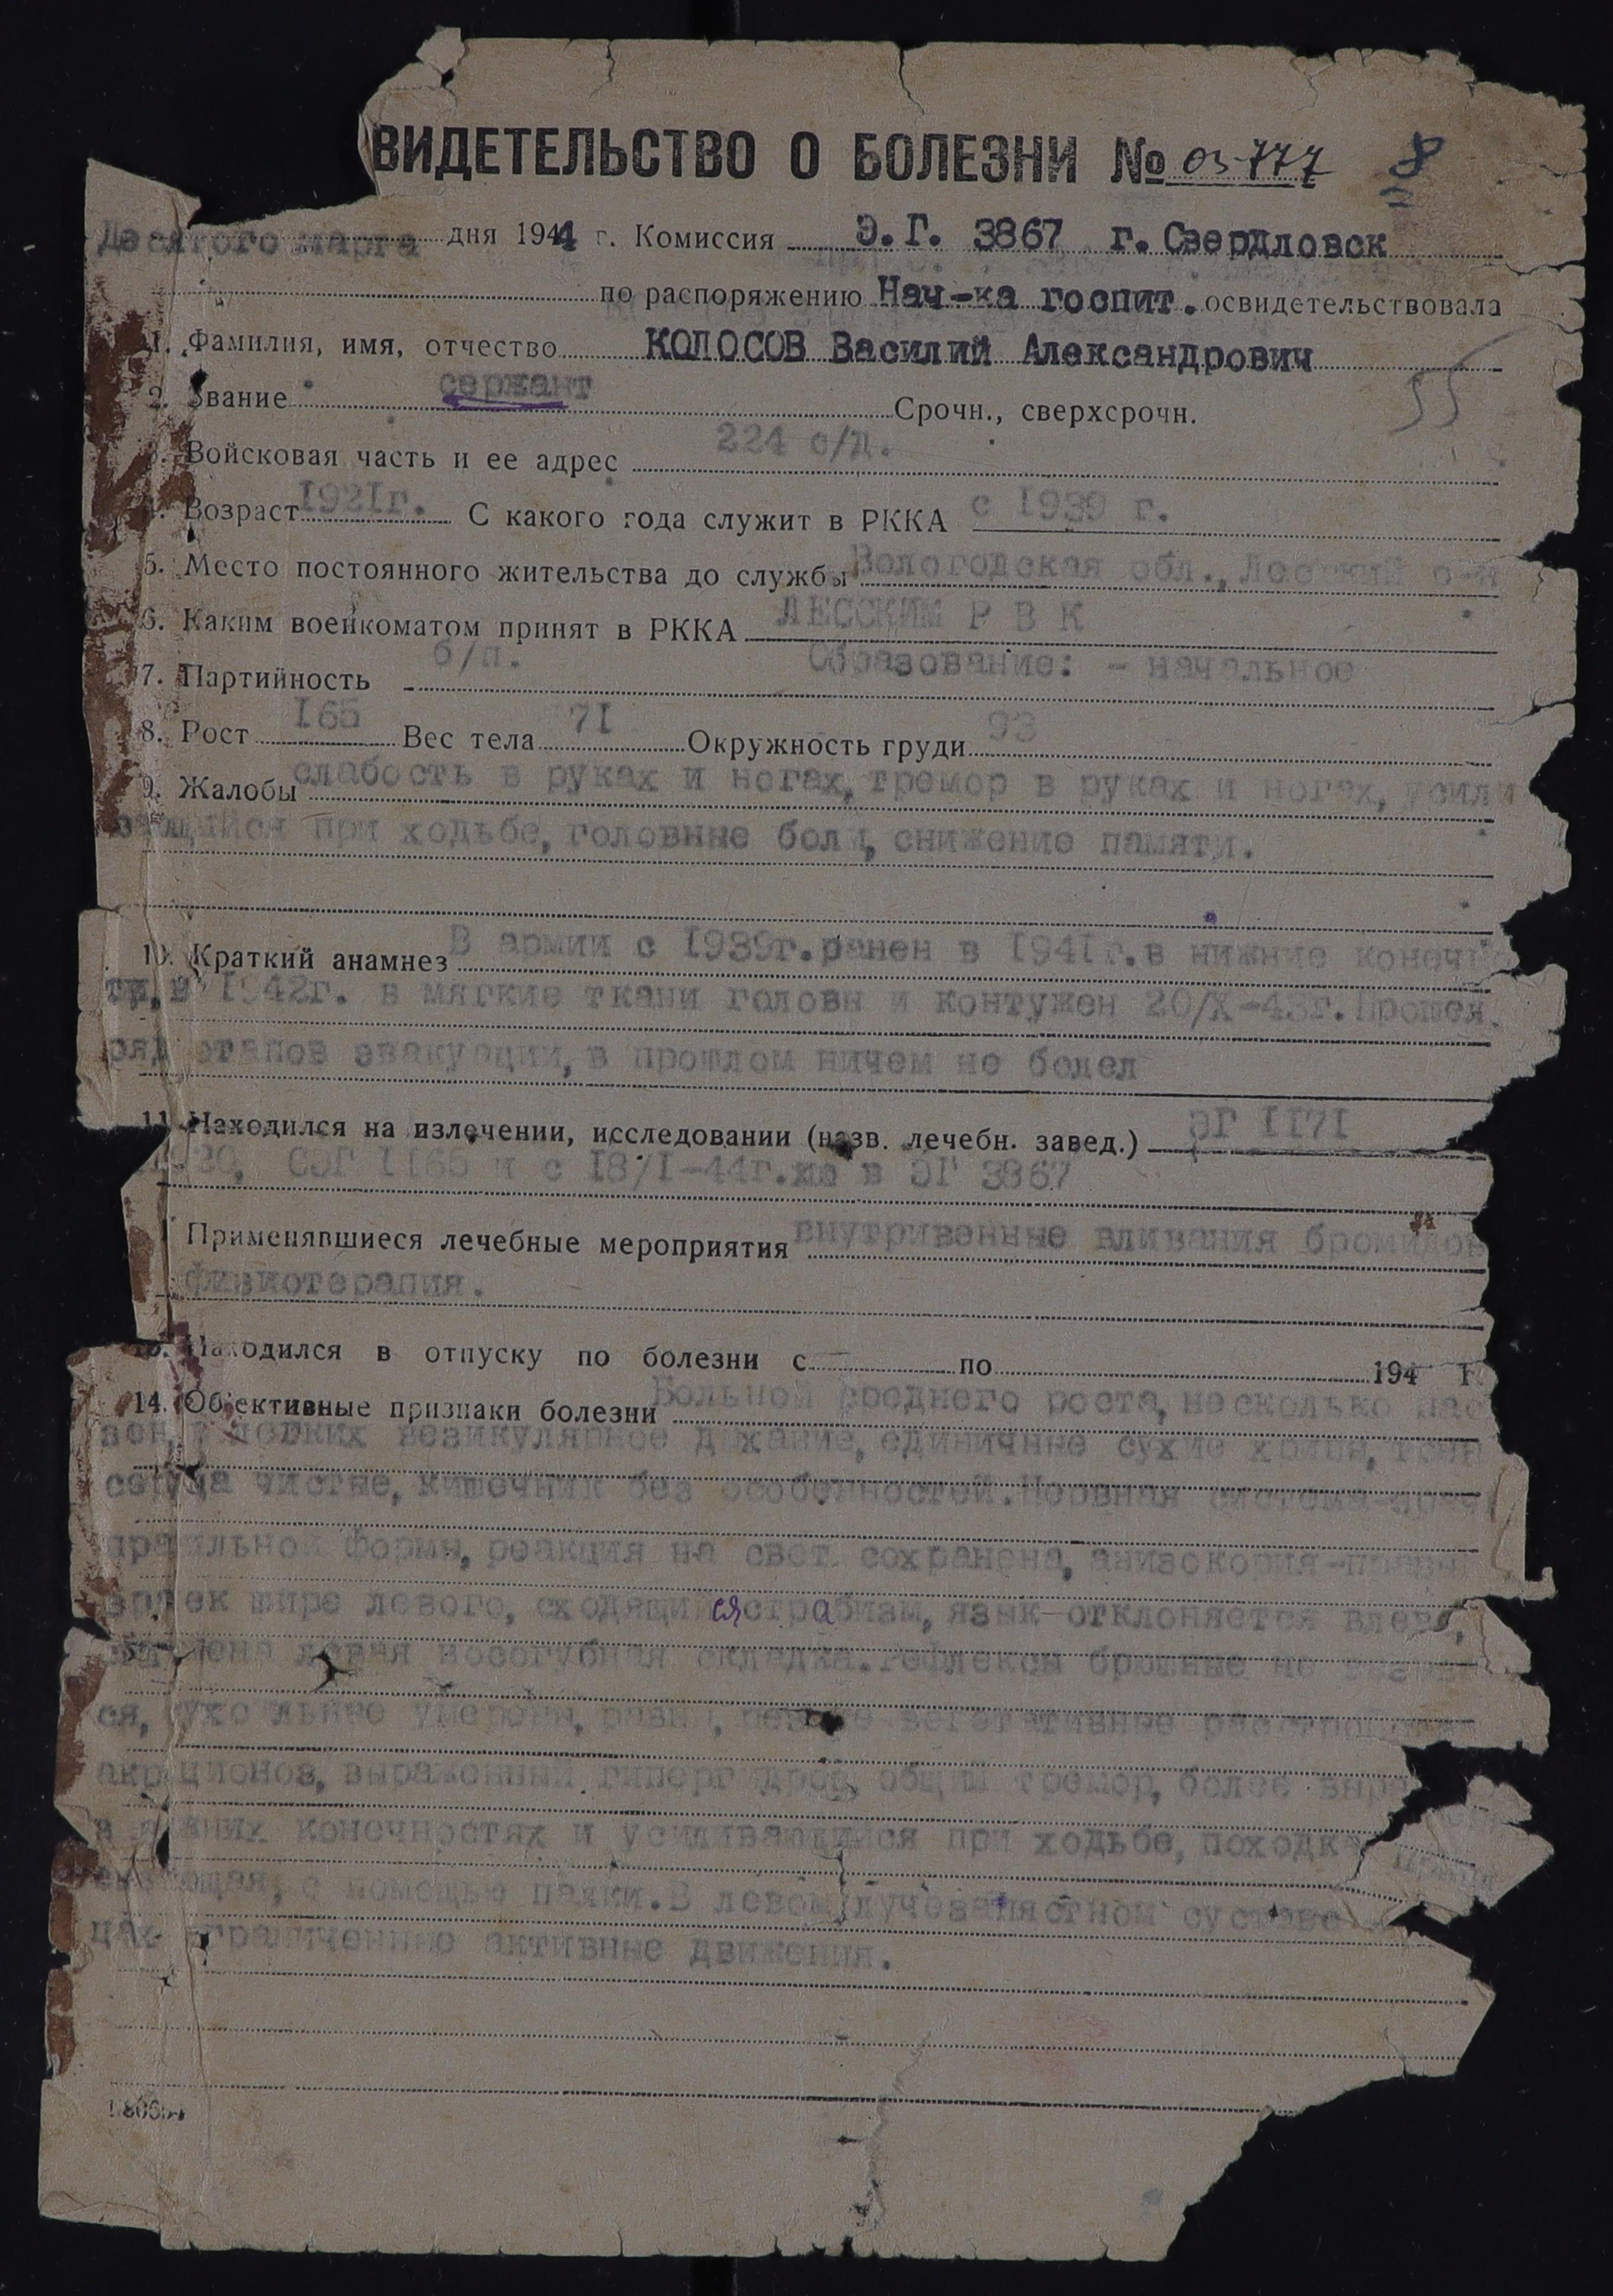 ВИДЕТЕЛЬСТВО О БОЛЕЗНИ № 03777 8
Десятого марта дня 1944 г. Комиссия Э.Г. 3867 г. Свердловск
по распоряжению Нач-ка госпит. освидетельствовала
1. Фамилия, имя, отчество КОЛОСОВ Василий Александрович
2. Звание сержант Срочн., сверхсрочн. 55
3. Войсковая часть и ее адрес 224 с/д.
4. Возраст 1921г. С какого года служит в РККА с 1939 г.
5. Место постоянного жительства до службы Вологодская обл., Лесский р-н
6. Каким военкоматом принят в РККА ЛЕССКИМ Р В К
7. Партийность б/п. Образование: - начальное
8. Рост 165 Вес тела 71 Окружность груди 93
9. Жалобы слабость в руках и ногах, тремор в руках и ногах, усили
вающийся при ходьбе, головные боли, снижение памяти.
10. Краткий анамнез В армии с 1939г. ранен в 1941г. в нижние конечно
сти, в 1942г. в мягкие ткани головы и контужен 20/X-43г. Прошел
ряд этапов эвакуации, в прошлом ничем не болел
11. Находился на излечении, исследовании (назв. лечебн. завед.) ЭГ 1171
СЭГ 1165 и с 18/I-44г. по в ЭГ 3867
Применявшиеся лечебные мероприятия внутривенные вливания бромидов
физиотерапия.
13. Находился в отпуску по болезни с - по 194 г.
14. Об'ективные признаки болезни Больной среднего роста, несколько
в легких везикулярное дыхание, единичные сухие хрипы, тоны
сердца чистые, кишечник без особенностей. Нервная система-
правильной формы, реакция на свет сохранена, анизокория-правый
зрачек шире левого, сходящийся страбизм, язык отклоняется влево,
левая носогубная складка. Рефлексы брюшные не
ся, сухожильные умерены, равны, вегетативные
акроцианоз, выраженный гипергидроз, общий тремор, более
в нижних конечностях и усиливающийся при ходьбе, походка
с помощью палки. В левом лучезапястном суставе
ограниченные активные движения.